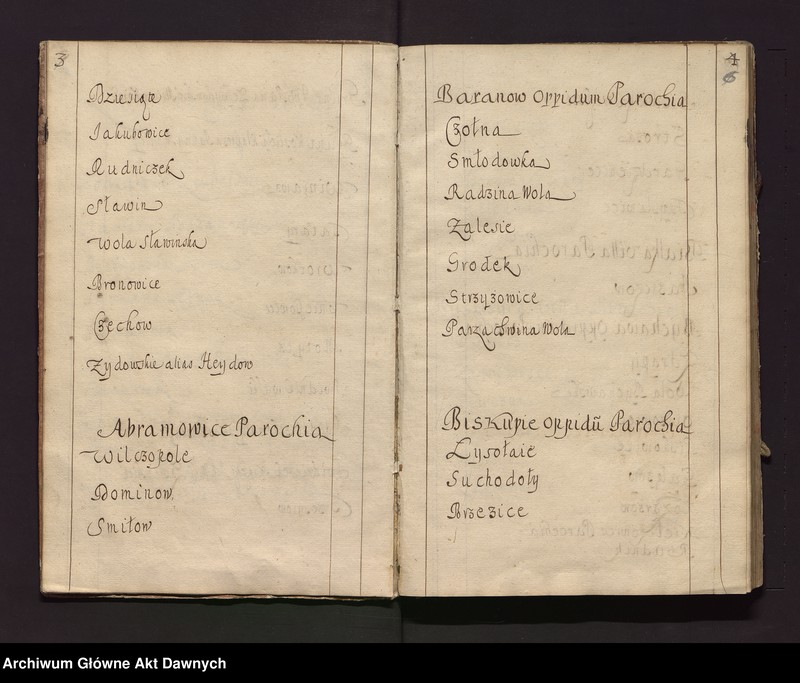 3
Dziesiąte
Jakubowice
Rudniczek
Sławin
Wola Sławinska
Bronowice
Czechow
Zydowskie alias Heydow
Abramowice Parochia
Wilczopole
Dominow
Smiłow
4
6
Baranow Oppidum Parochia
Czołna
Smłodowka
Radzina Wola
Zalesie
Grodek
Strzyzowice
Parzączwina Wola
Biskupie Oppidū Parochia
Lysołaie
Suchodoły
Brzezice
Archiwum Główne Akt Dawnych